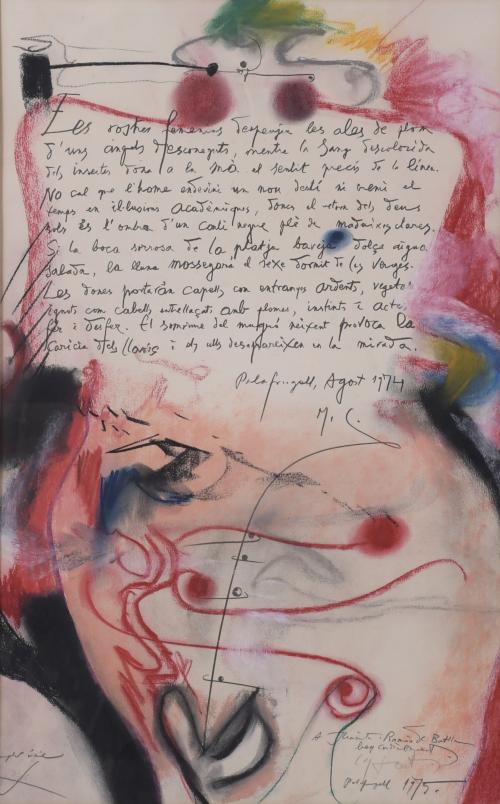 Les vostres femenines despenja les ales de plom
d'uns àngels desconeguts, mentre la sang descolorida
dels insectes dóna a la mà el sentit precís de la línea.
No cal que l'home endevini un nou destí ni meni el
temps en il·lusions acadèmiques, doncs el etern dels deus
sols és l'ombra d'un canti negre ple de maduixes clares.
Si la boca sorrosa de la platja baveja dolça aigua
salada, la lluna mossegarà el sexe dormit de les verges.
Les dones portaràn capells con entranyes ardents, vegetos
amb cabells entrellaçats amb plomes, instints i actes
fer i desfer. El somriure del maniquí neixent provoca la
caricia dels llavis i els ulls desapareixen en la mirada.
Palafrugell, Agost 1974
M. C.
A Jacinto i Ramón de Batlle
Palafrugell 1975.